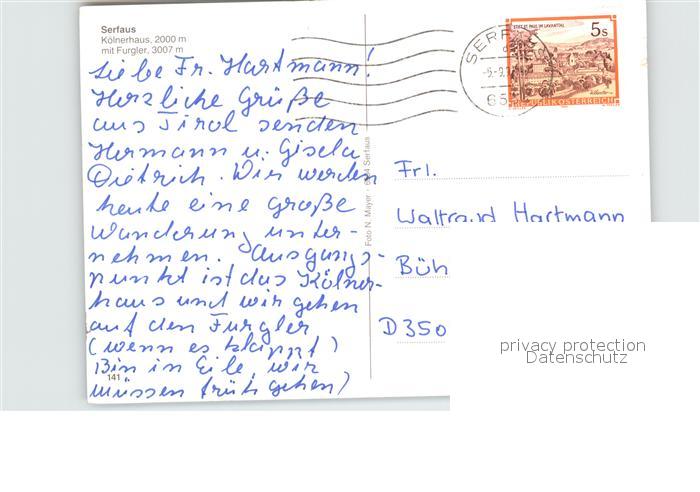 Serfaus
Kölnerhaus, 2000 m
mit Furgler, 3007 m
Liebe Fr. Hartmann!
Herzliche Grüße
aus Tirol senden
Hermann u. Gisela
Dietrich. Wir werden
heute eine große
Wanderung unter-
nehmen. Ausgangs-
punkt ist das Kölner-
haus und wir gehen
auf den Furgler
(wenn es klappt)
Bin in Eile, wir
müssen früh gehen)
141
Foto N. Mayer · Serfaus
STIFT ST. PAUL IM LAVANTTAL
5s
REPUBLIK ÖSTERREICH
SERF
Frl.
Waltraud Hartmann
Büh
D350
privacy protection
Datenschutz